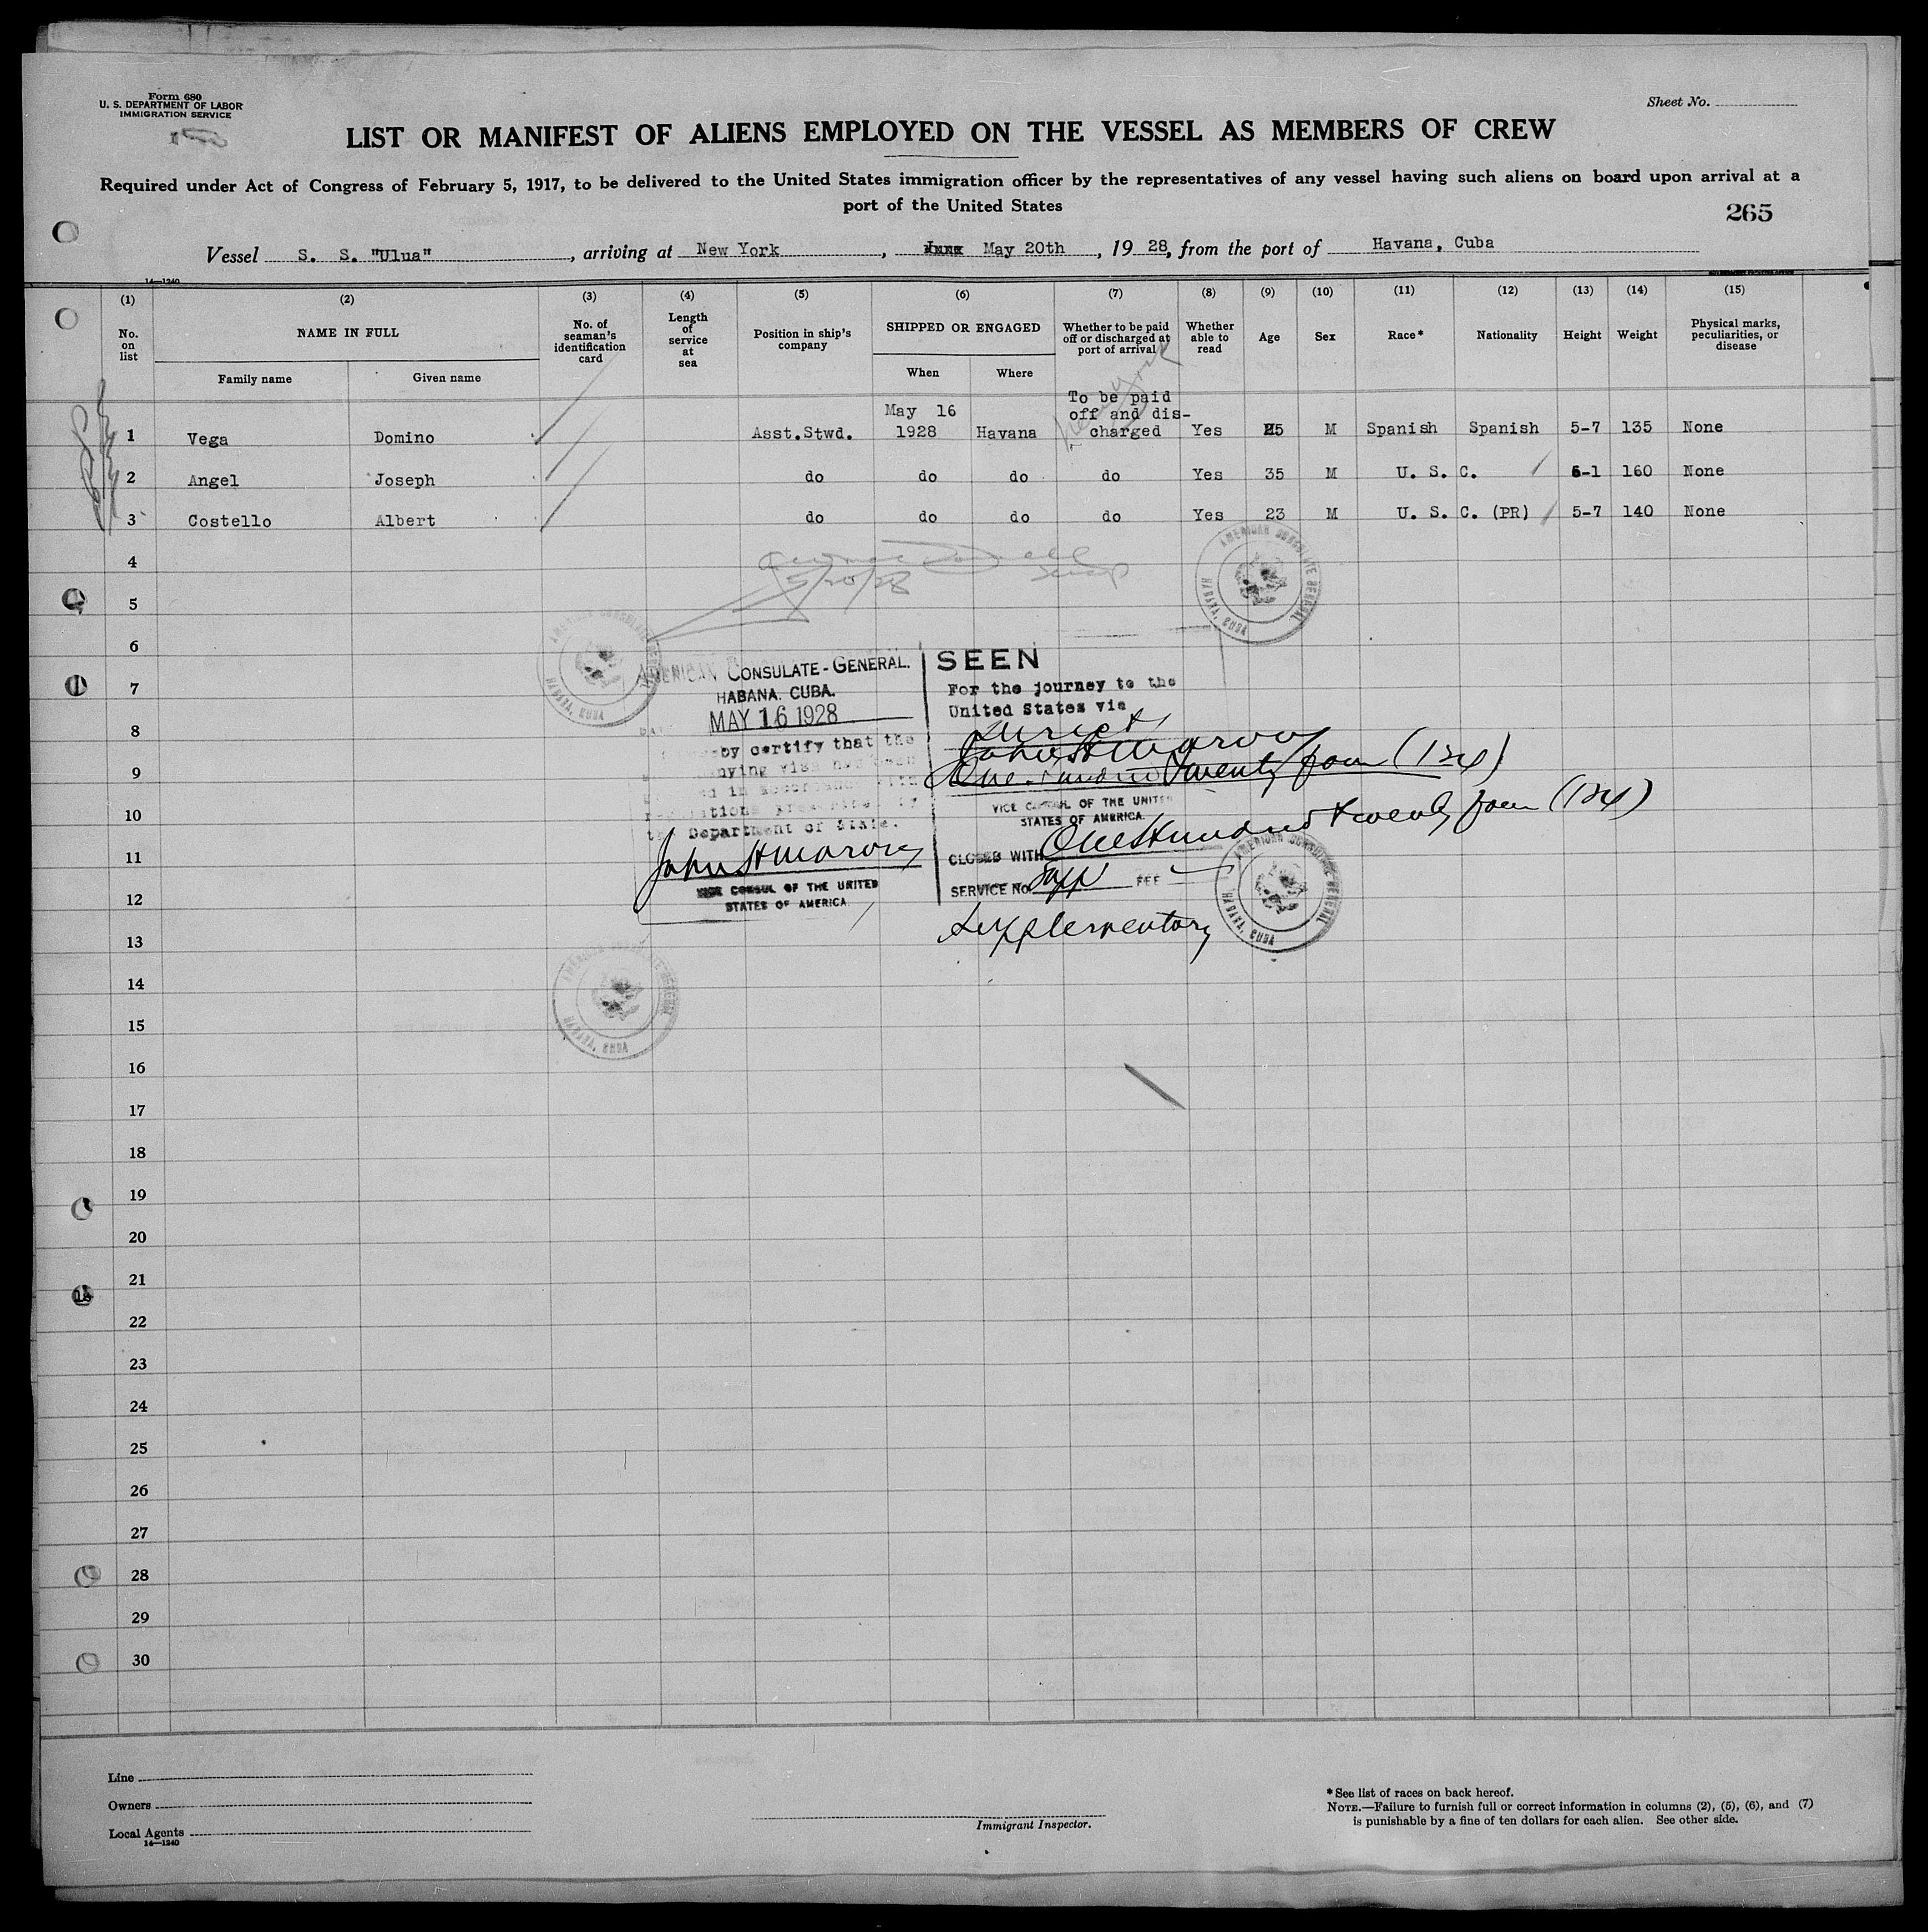 Form 680
U. S. DEPARTMENT OF LABOR
IMMIGRATION SERVICE
Sheet No.
LIST OR MANIFEST OF ALIENS EMPLOYED ON THE VESSEL AS MEMBERS OF CREW
Required under Act of Congress of February 5, 1917, to be delivered to the United States immigration officer by the representatives of any vessel having such aliens on board upon arrival at a
port of the United States
265
Vessel S. S. "Ulua", arriving at New York, May 20th, 19 28, from the port of Havana, Cuba
14—1240
(1) (2) (3) (4) (5) (6) (7) (8) (9) (10) (11) (12) (13) (14) (15)
No. on list
NAME IN FULL
Family name
Given name
No. of seaman's identification card
Length of service at sea
Position in ship's company
SHIPPED OR ENGAGED
When
Where
Whether to be paid off or discharged at port of arrival
Whether able to read
Age
Sex
Race*
Nationality
Height
Weight
Physical marks, peculiarities, or disease
New York
1 Vega Domino Asst.Stwd. May 16 1928 Havana To be paid off and dis-charged Yes 25 M Spanish Spanish 5-7 135 None
2 Angel Joseph do do do do Yes 35 M U. S. C. 5-1 160 None
3 Costello Albert do do do do Yes 23 M U. S. C. (PR) 5-7 140 None
4
5/20/28
5
6
7
8
9
10
11
12
13
14
15
16
17
18
19
20
21
22
23
24
25
26
27
28
29
30
AMERICAN CONSULATE GENERAL
HABANA, CUBA
AMERICAN CONSULATE GENERAL
HABANA, CUBA
AMERICAN CONSULATE-GENERAL.
HABANA. CUBA.
MAY 16 1928
by certify that the
Department of State.
John H Marvin
VICE CONSUL OF THE UNITED
STATES OF AMERICA
SEEN
For the journey to the
United States via
Direct
John H Marvin
One Hundred Twenty four (124)
VICE CONSUL OF THE UNITED
STATES OF AMERICA.
CLOSED WITH One Hundred & twenty four (124)
SERVICE No. Supp FEE
Supplementary
AMERICAN CONSULATE GENERAL
HABANA, CUBA
AMERICAN CONSULATE GENERAL
HABANA, CUBA
Line
Owners
Local Agents
14—1240
Immigrant Inspector.
*See list of races on back hereof.
NOTE.—Failure to furnish full or correct information in columns (2), (5), (6), and (7)
is punishable by a fine of ten dollars for each alien. See other side.